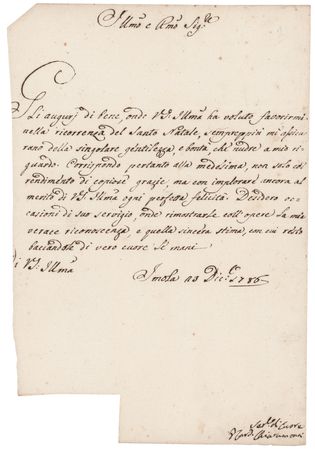 Illmo e Rmo Sigre
Gli augurj di bene, onde V.S. Illma ha voluto favorirmi
nella ricorrenza del Santo Natale, semprappiù mi assicu
rano della singolare gentilezza, e bontà che nudre a mio ri
guardo. Corrispondo pertanto alla medesima, non solo col
rendimento di copiose grazie, ma con implorare ancora al
merito di V.S. Illma ogni perfetta felicità. Desidero oc
casioni di suo servigio, onde rimostrarle coll' opere la mia
verace riconoscenza, e quella sincera stima, con cui resto
baciandole di vero cuore le mani
di V.S. Illma
Imola 23 Dicre 1786
Card. Chiaramonti